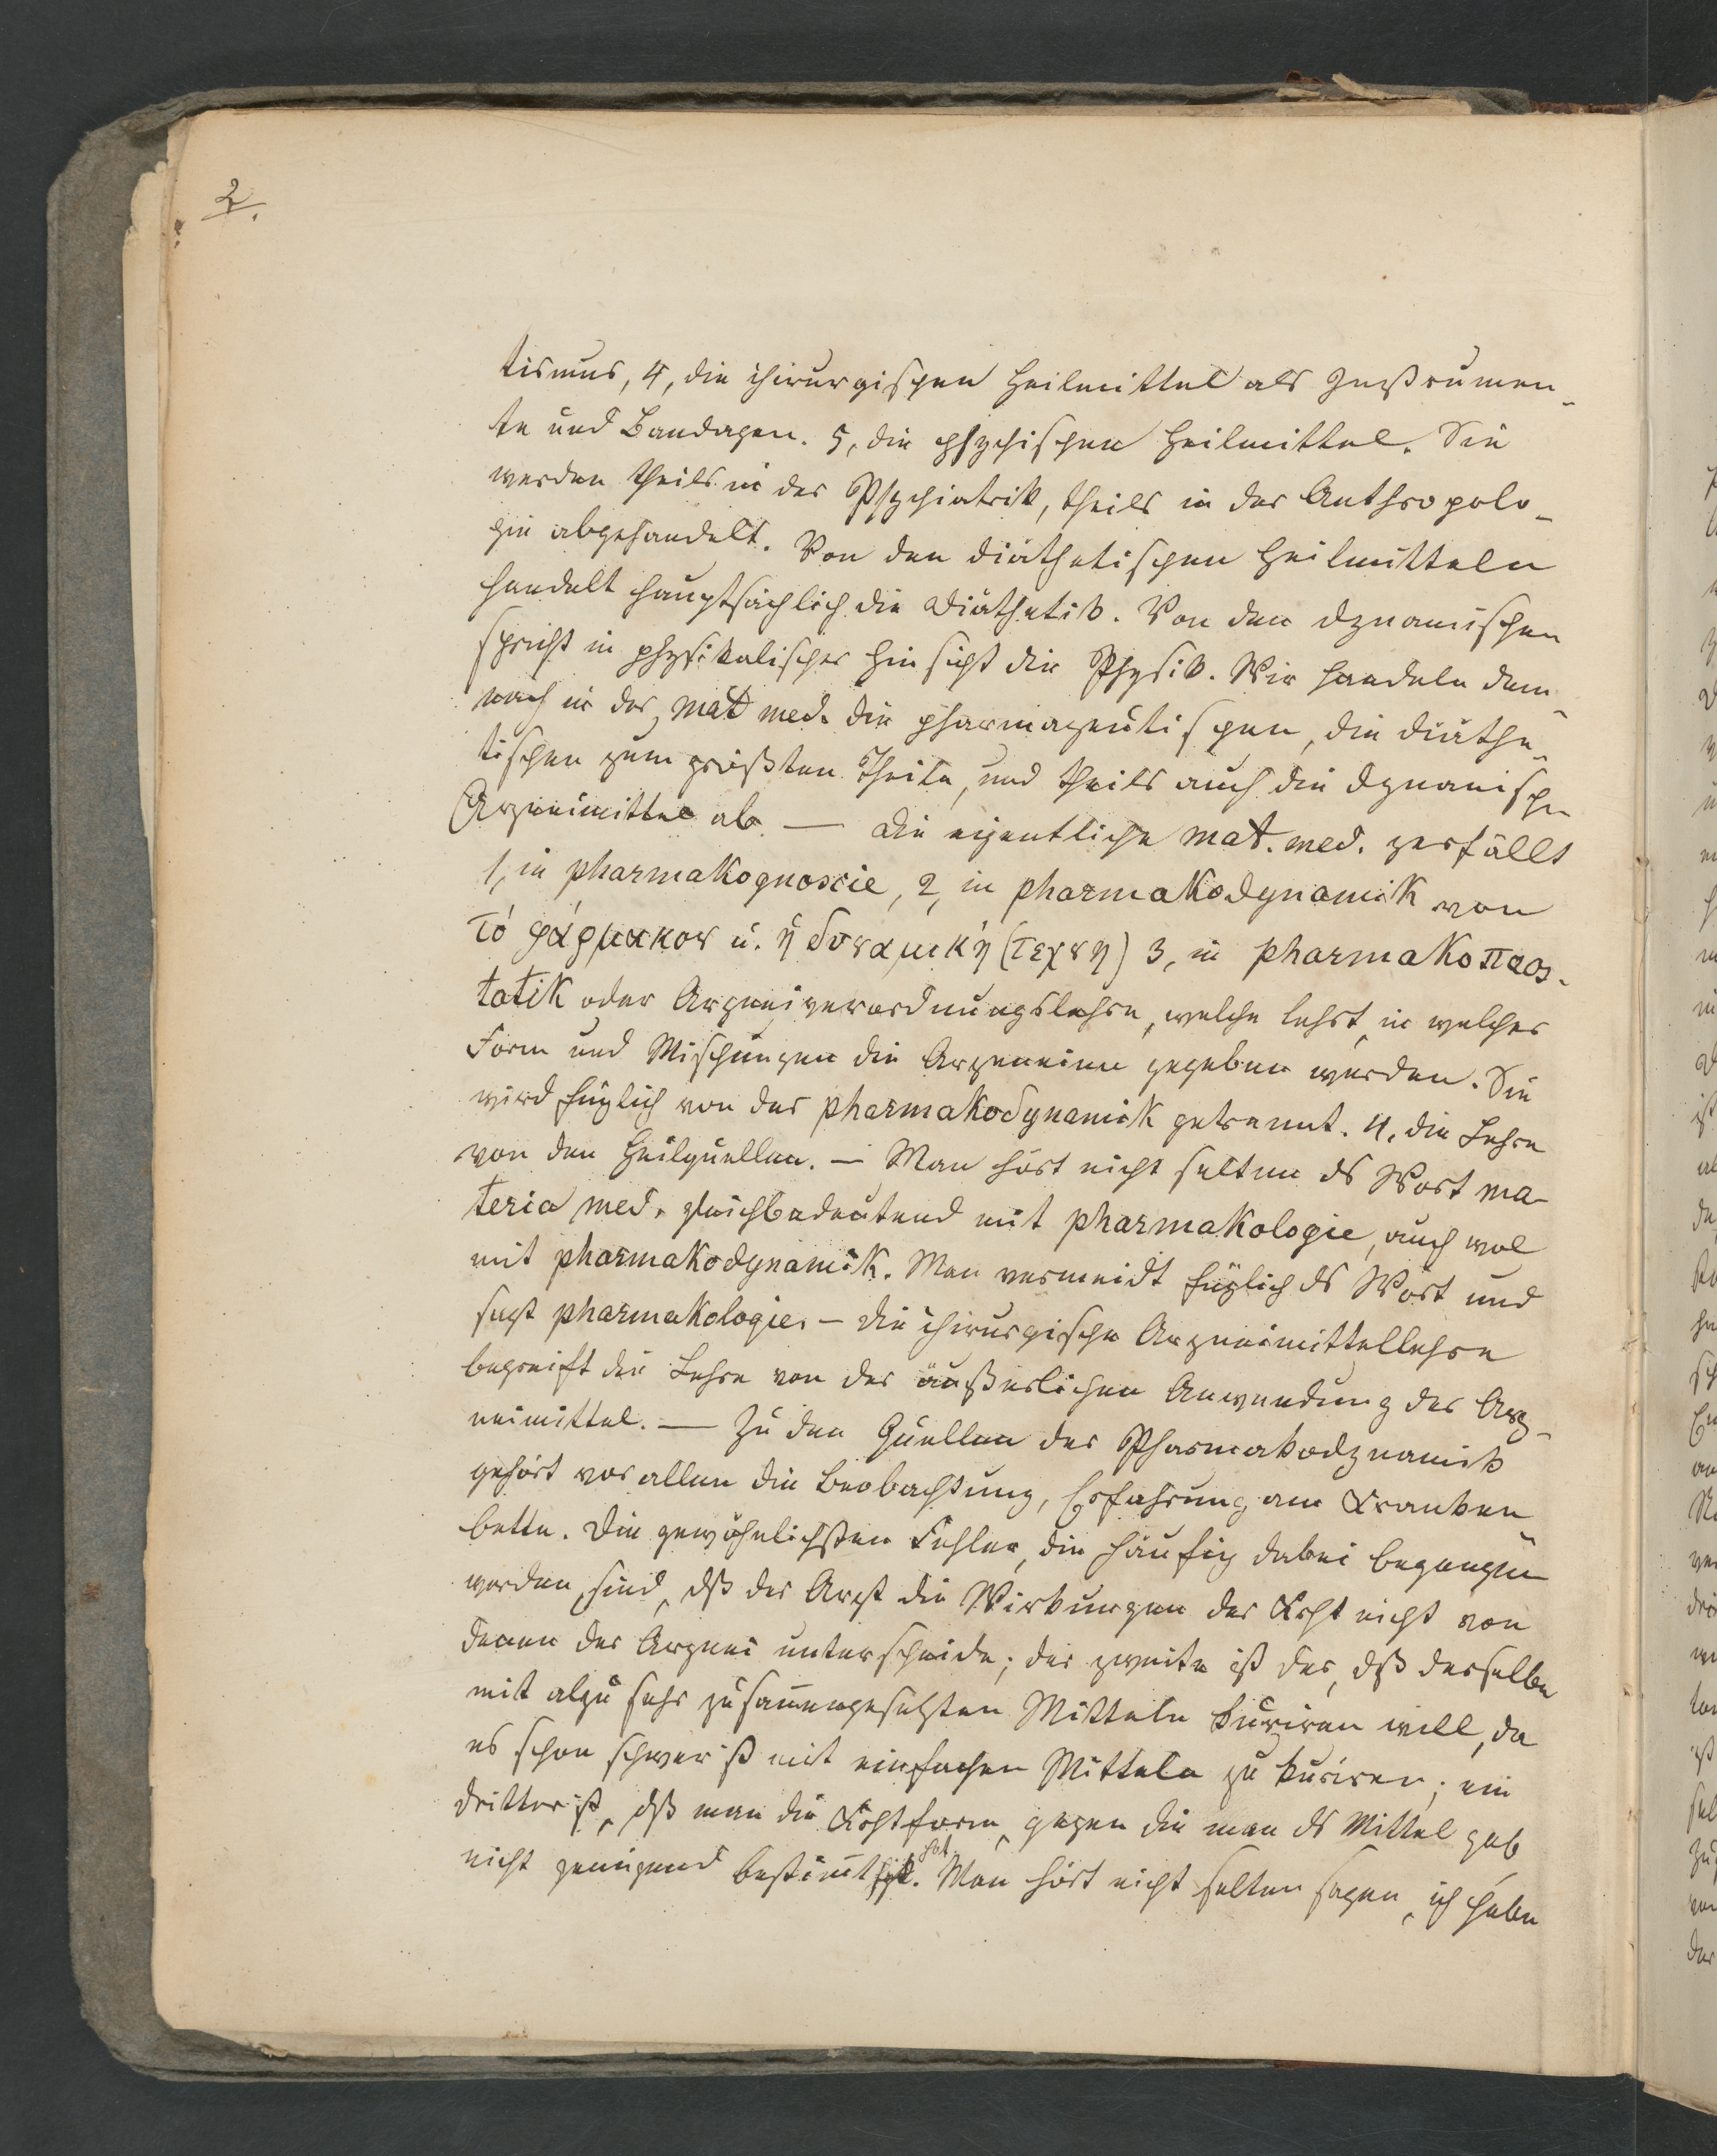 2.
tismus, 4, die chirurgischen Heilmittel als Instrumen-
te und Bandagen. 5, die psychischen Heilmittel. Sie
werden theils in der Psychiatrik, theils in der Anthropolo-
gie abgehandelt. Von den diäthetischen Heilmitteln
handelt hauptsächlich die Diäthetik. Von den dynamischen
spricht in physikalischer Hinsicht die Physik. Wir handeln dem-
nach in der mat med. die pharmazeutischen, die diäthe-
tischen zum größten Theile, und theils auch die dynamischen
Arzneimittel ab. — Die eigentliche mat. med. zerfällt
1, in pharmakognosie, 2, in pharmakodynamik von
τό φάρμακον u. ἡ δυναμική (τεχνη) 3, in pharmako
tatik oder Arzneiverordnungslehre, welche lehrt, in welcher
Form und Mischungen die Arzeneien gegeben werden. Sie
wird füglich von der pharmakodynamik getrennt. 4, die Lehre
von den Heilquellen. — Man hört nicht selten ds Wort ma-
teria med. gleichbedeutend mit pharmakologie, auch wol
mit pharmakodynamik. Man vermeidt füglich ds Wort und
sagt pharmakologie. — Die chirurgische Arzneimittellehre
begreift die Lehre von der äußerlichen Anwendung der Arz-
neimittel. — Zu den Quellen der Pharmakodynamik
gehört vor allen die Beobachtung, Erfahrung am Kranken-
bette. Die gewöhnlichsten Fehler, die häufig dabei begangen
werden, sind, dß der Arzt die Wirkungen der Krht nicht von
denen der Arznei unterscheide; der zweite ist der, dß derselbe
mit alzu sehr zusam̄engesetzten Mitteln kuriren will, da
es schon schwer ist mit einfachen Mitteln zu kuriren; ein
dritter ist, dß man die Krhtform, gegen die man ds Mittel gab,
nicht genügend bestim̄t hat. Man hört nicht selten sagen, ich habe